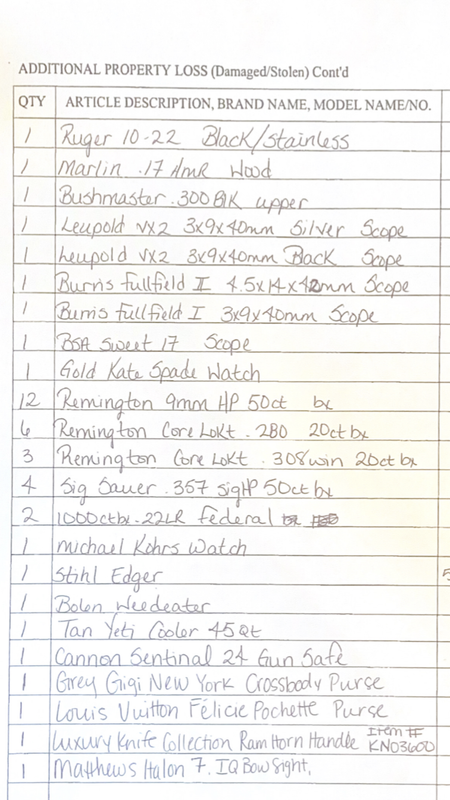 ADDITIONAL PROPERTY LOSS (Damaged/Stolen) Cont'd
QTY ARTICLE DESCRIPTION, BRAND NAME, MODEL NAME/NO.
1 Ruger 10-22 Black/Stainless
1 Marlin .17 HMR Wood
1 Bushmaster .300 BLK upper
1 Leupold VX2 3x9x40mm Silver Scope
1 Leupold VX2 3x9x40mm Black Scope
1 Burris Fullfield II 4.5x14x42mm Scope
1 Burris Fullfield I 3x9x40mm Scope
1 BSA Sweet 17 Scope
1 Gold Kate Spade Watch
12 Remington 9mm HP 50ct bx
6 Remington Core Lokt .280 20ct bx
3 Remington Core Lokt .308 win 20ct bx
4 Sig Sauer .357 sig HP 50ct bx
2 1000ct bx .22LR Federal
1 Michael Kohrs Watch
1 Stihl Edger
1 Bolen Weedeater
1 Tan Yeti Cooler 45 Qt
1 Cannon Sentinal 24 Gun Safe
1 Grey Gigi New York Crossbody Purse
1 Louis Vuitton Félicie Pochette Purse
1 Luxury Knife Collection Ram Horn Handle Item # KN03600
1 Matthews Halon 7. IQ Bow Sight,